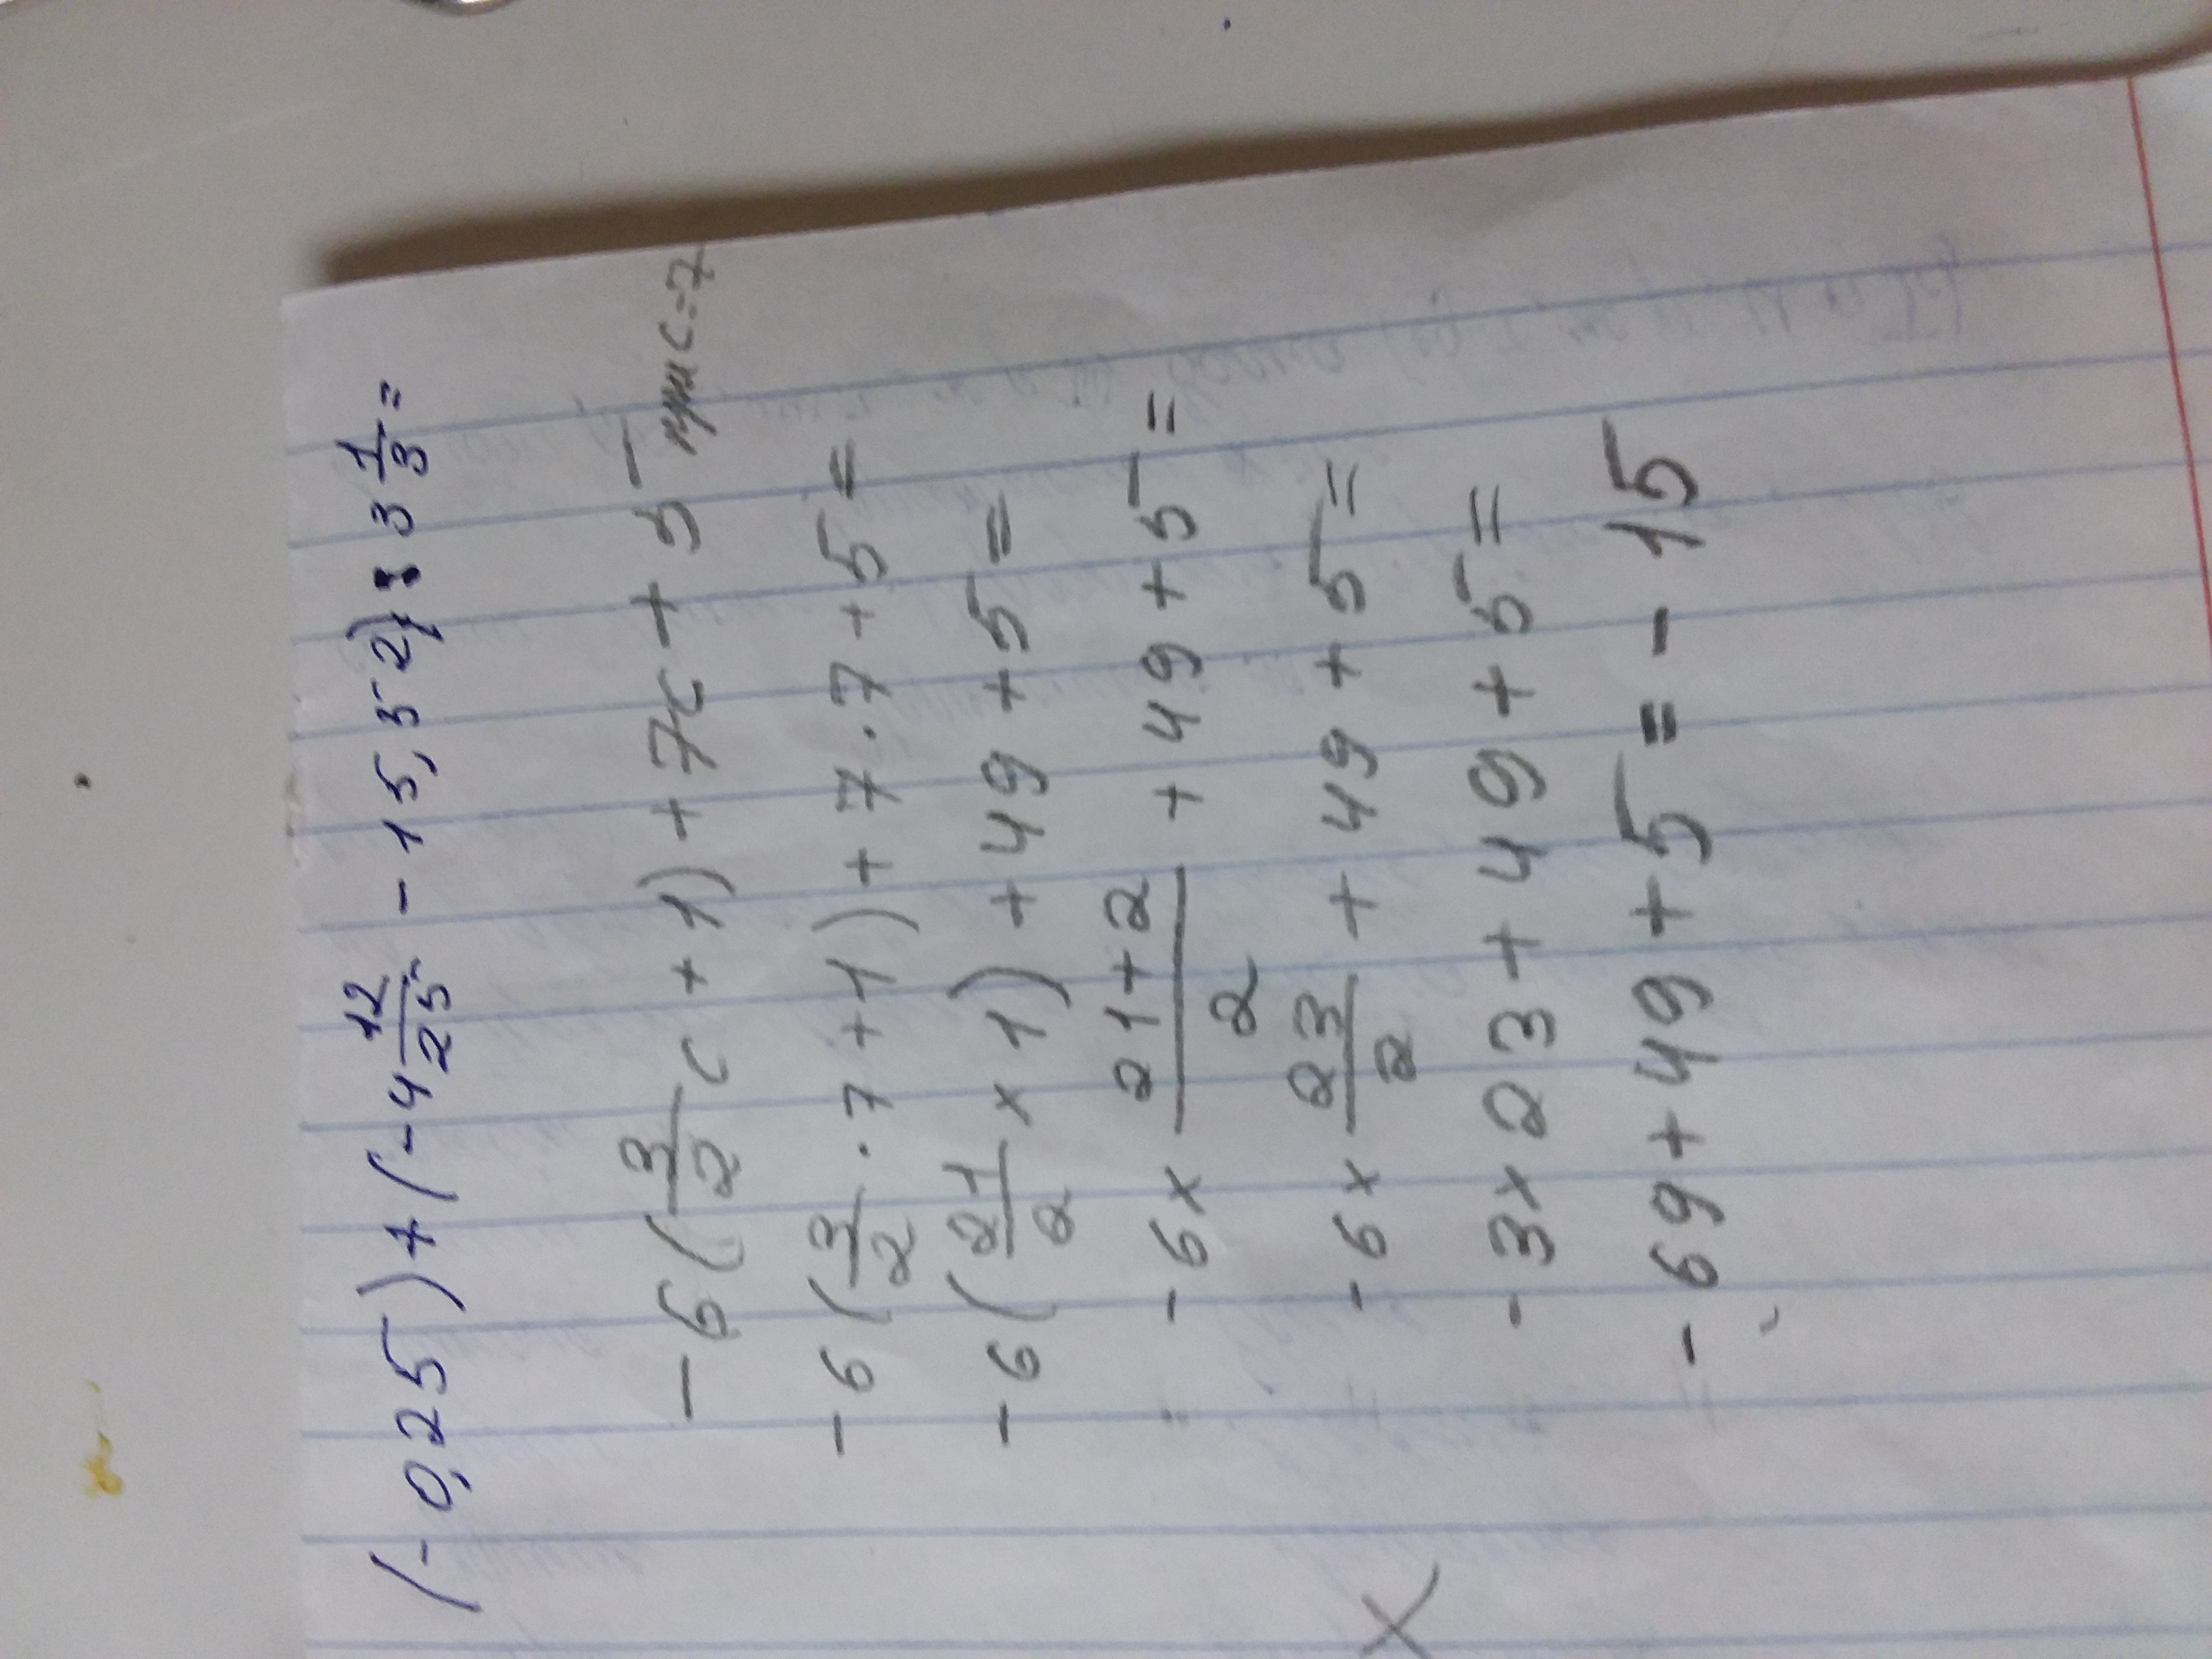 (-0,25)+(-4 12/25 - 15,52) : 3 1/3 =
-6(3/2 c + 1) + 7c + 5 при c=7
-6(3/2 · 7 + 1) + 7 · 7 + 5 =
-6(21/2 × 1) + 49 + 5 =
-6 × (21+2)/2 + 49 + 5 =
-6 × 23/2 + 49 + 5 =
-3 × 23 + 49 + 5 =
-69 + 49 + 5 = -15
X